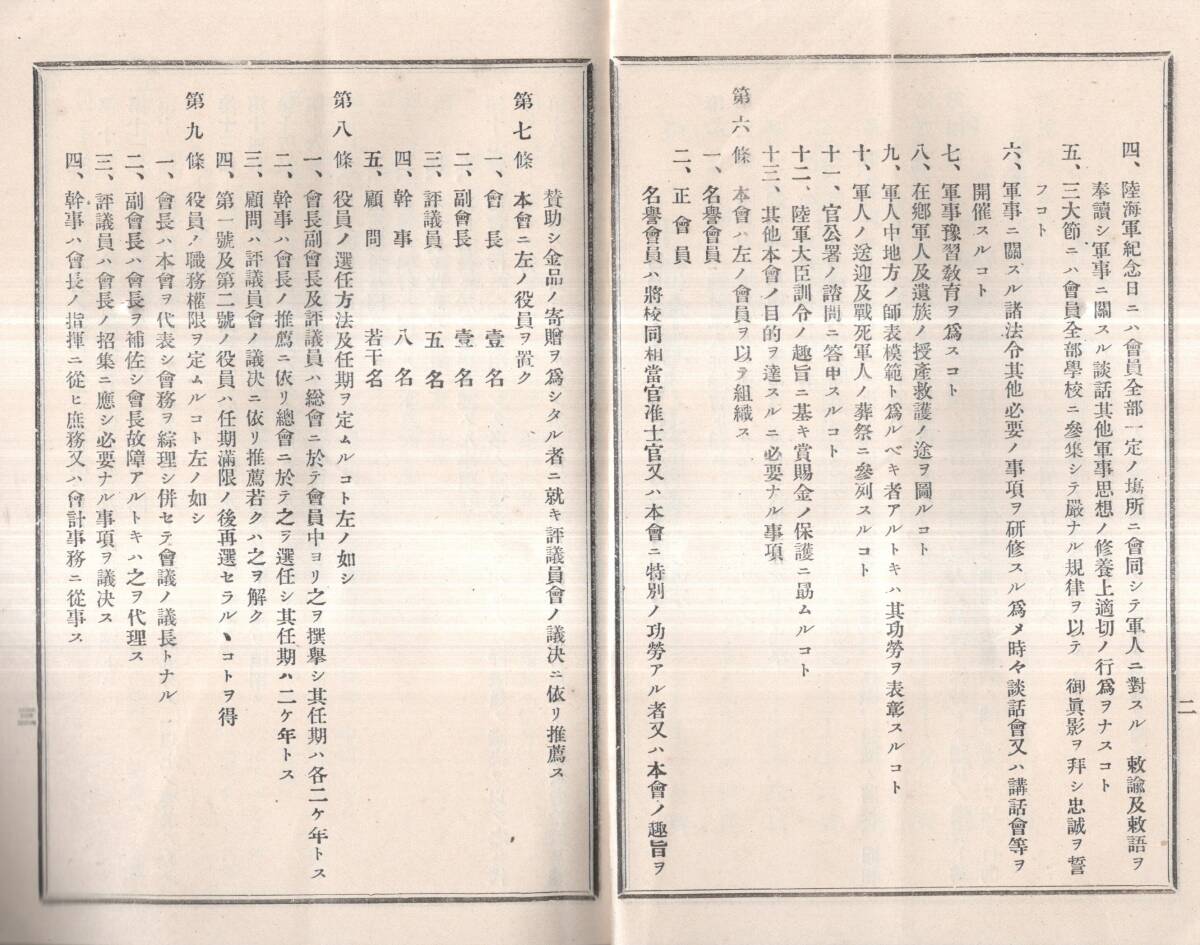 二
四、陸海軍紀念日ニハ會員全部一定ノ塲所ニ會同シテ軍人ニ對スル　敕諭及敕語ヲ
奉讀シ軍事ニ關スル談話其他軍事思想ノ修養上適切ノ行爲ヲナスコト
五、三大節ニハ會員全部學校ニ參集シテ嚴ナル規律ヲ以テ　御眞影ヲ拜シ忠誠ヲ誓
フコト
六、軍事ニ關スル諸法令其他必要ノ事項ヲ研修スル爲メ時々談話會又ハ講話會等ヲ
開催スルコト
七、軍事豫習敎育ヲ爲スコト
八、在鄕軍人及遺族ノ授產救護ノ途ヲ圖ルコト
九、軍人中地方ノ師表模範ト爲ルベキ者アルトキハ其功勞ヲ表彰スルコト
十、軍人ノ送迎及戰死軍人ノ葬祭ニ參列スルコト
十一、官公署ノ諮問ニ答申スルコト
十二、陸軍大臣訓令ノ趣旨ニ基キ賞賜金ノ保護ニ勗ムルコト
十三、其他本會ノ目的ヲ達スルニ必要ナル事項
第六條　本會ハ左ノ會員ヲ以テ組織ス
一、名譽會員
二、正會員
名譽會員ハ將校同相當官准士官又ハ本會ニ特別ノ功勞アル者又ハ本會ノ趣旨ヲ
賛助シ金品ノ寄贈ヲ爲シタル者ニ就キ評議員會ノ議決ニ依リ推薦ス
第七條　本會ニ左ノ役員ヲ置ク
一、會長　壹名
二、副會長　壹名
三、評議員　五名
四、幹事　八名
五、顧問　若干名
第八條　役員ノ選任方法及任期ヲ定ムルコト左ノ如シ
一、會長副會長及評議員ハ總會ニ於テ會員中ヨリ之ヲ撰擧シ其任期ハ各二ケ年トス
二、幹事ハ會長ノ推薦ニ依リ總會ニ於テ之ヲ選任シ其任期ハ二ケ年トス
三、顧問ハ評議員會ノ議決ニ依リ推薦若クハ之ヲ解ク
四、第一號及第二號ノ役員ハ任期滿限ノ後再選セラルヽコトヲ得
第九條　役員ノ職務權限ヲ定ムルコト左ノ如シ
一、會長ハ本會ヲ代表シ會務ヲ綜理シ併セテ會議ノ議長トナル
二、副會長ハ會長ヲ補佐シ會長故障アルトキハ之ヲ代理ス
三、評議員ハ會長ノ招集ニ應シ必要ナル事項ヲ議決ス
四、幹事ハ會長ノ指揮ニ從ヒ庶務又ハ會計事務ニ從事ス
三